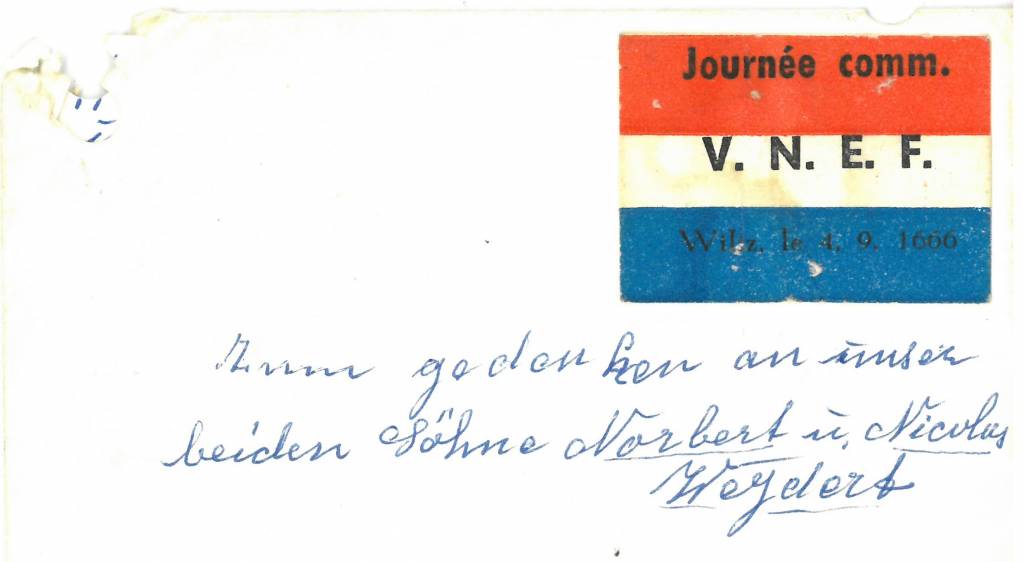 Journée comm.
V. N. E. F.
Wiltz, le 4. 9. 1666
Zum gedenken an unser
beiden Söhne Norbert u. Nicolas
Weydert